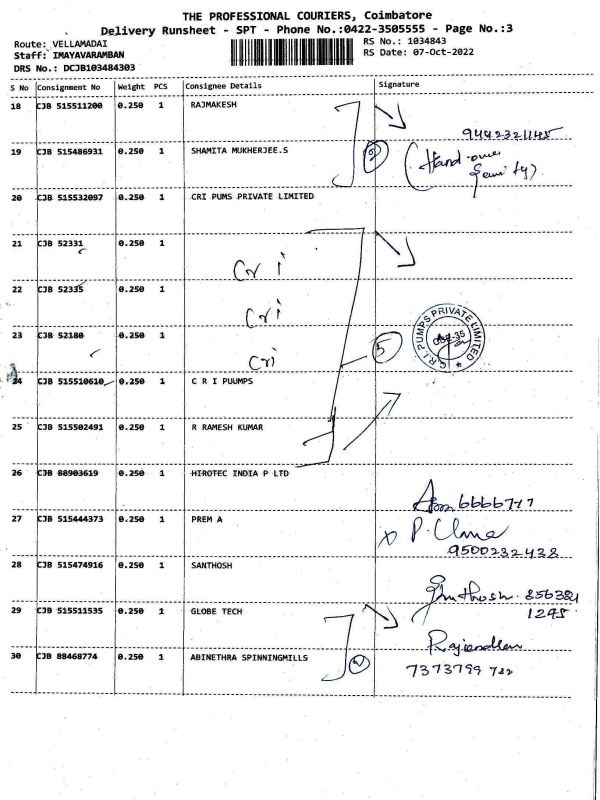 THE PROFESSIONAL COURIERS, Coimbatore
Delivery Runsheet - SPT - Phone No.:0422-3505555 - Page No.:3
Route: VELLAMADAI RS No.: 1034843
Staff: IMAYAVARAMBAN RS Date: 07-Oct-2022
DRS No.: DCJB103484303
S No Consignment No Weight PCS Consignee Details Signature
18 CJB 515511200 0.250 1 RAJMAKESH
9442321145
19 CJB 515486931 0.250 1 SHAMITA MUKHERJEE.S 2 (Hand over
family)
20 CJB 515532097 0.250 1 CRI PUMS PRIVATE LIMITED
21 CJB 52331 0.250 1
Cri
22 CJB 52335 0.250 1
Cri
23 CJB 52180 0.250 1
Cri 5 C.R.I PUMPS PRIVATE LIMITED
24 CJB 515510610 0.250 1 C R I PUUMPS
25 CJB 515502491 0.250 1 R RAMESH KUMAR
26 CJB 88903619 0.250 1 HIROTEC INDIA P LTD
6666777
27 CJB 515444373 0.250 1 PREM A
9500232438
28 CJB 515474916 0.250 1 SANTHOSH
856381
29 CJB 515511535 0.250 1 GLOBE TECH 1245
Rajendran
30 CJB 88468774 0.250 1 ABINETHRA SPINNINGMILLS 2
7373799 722